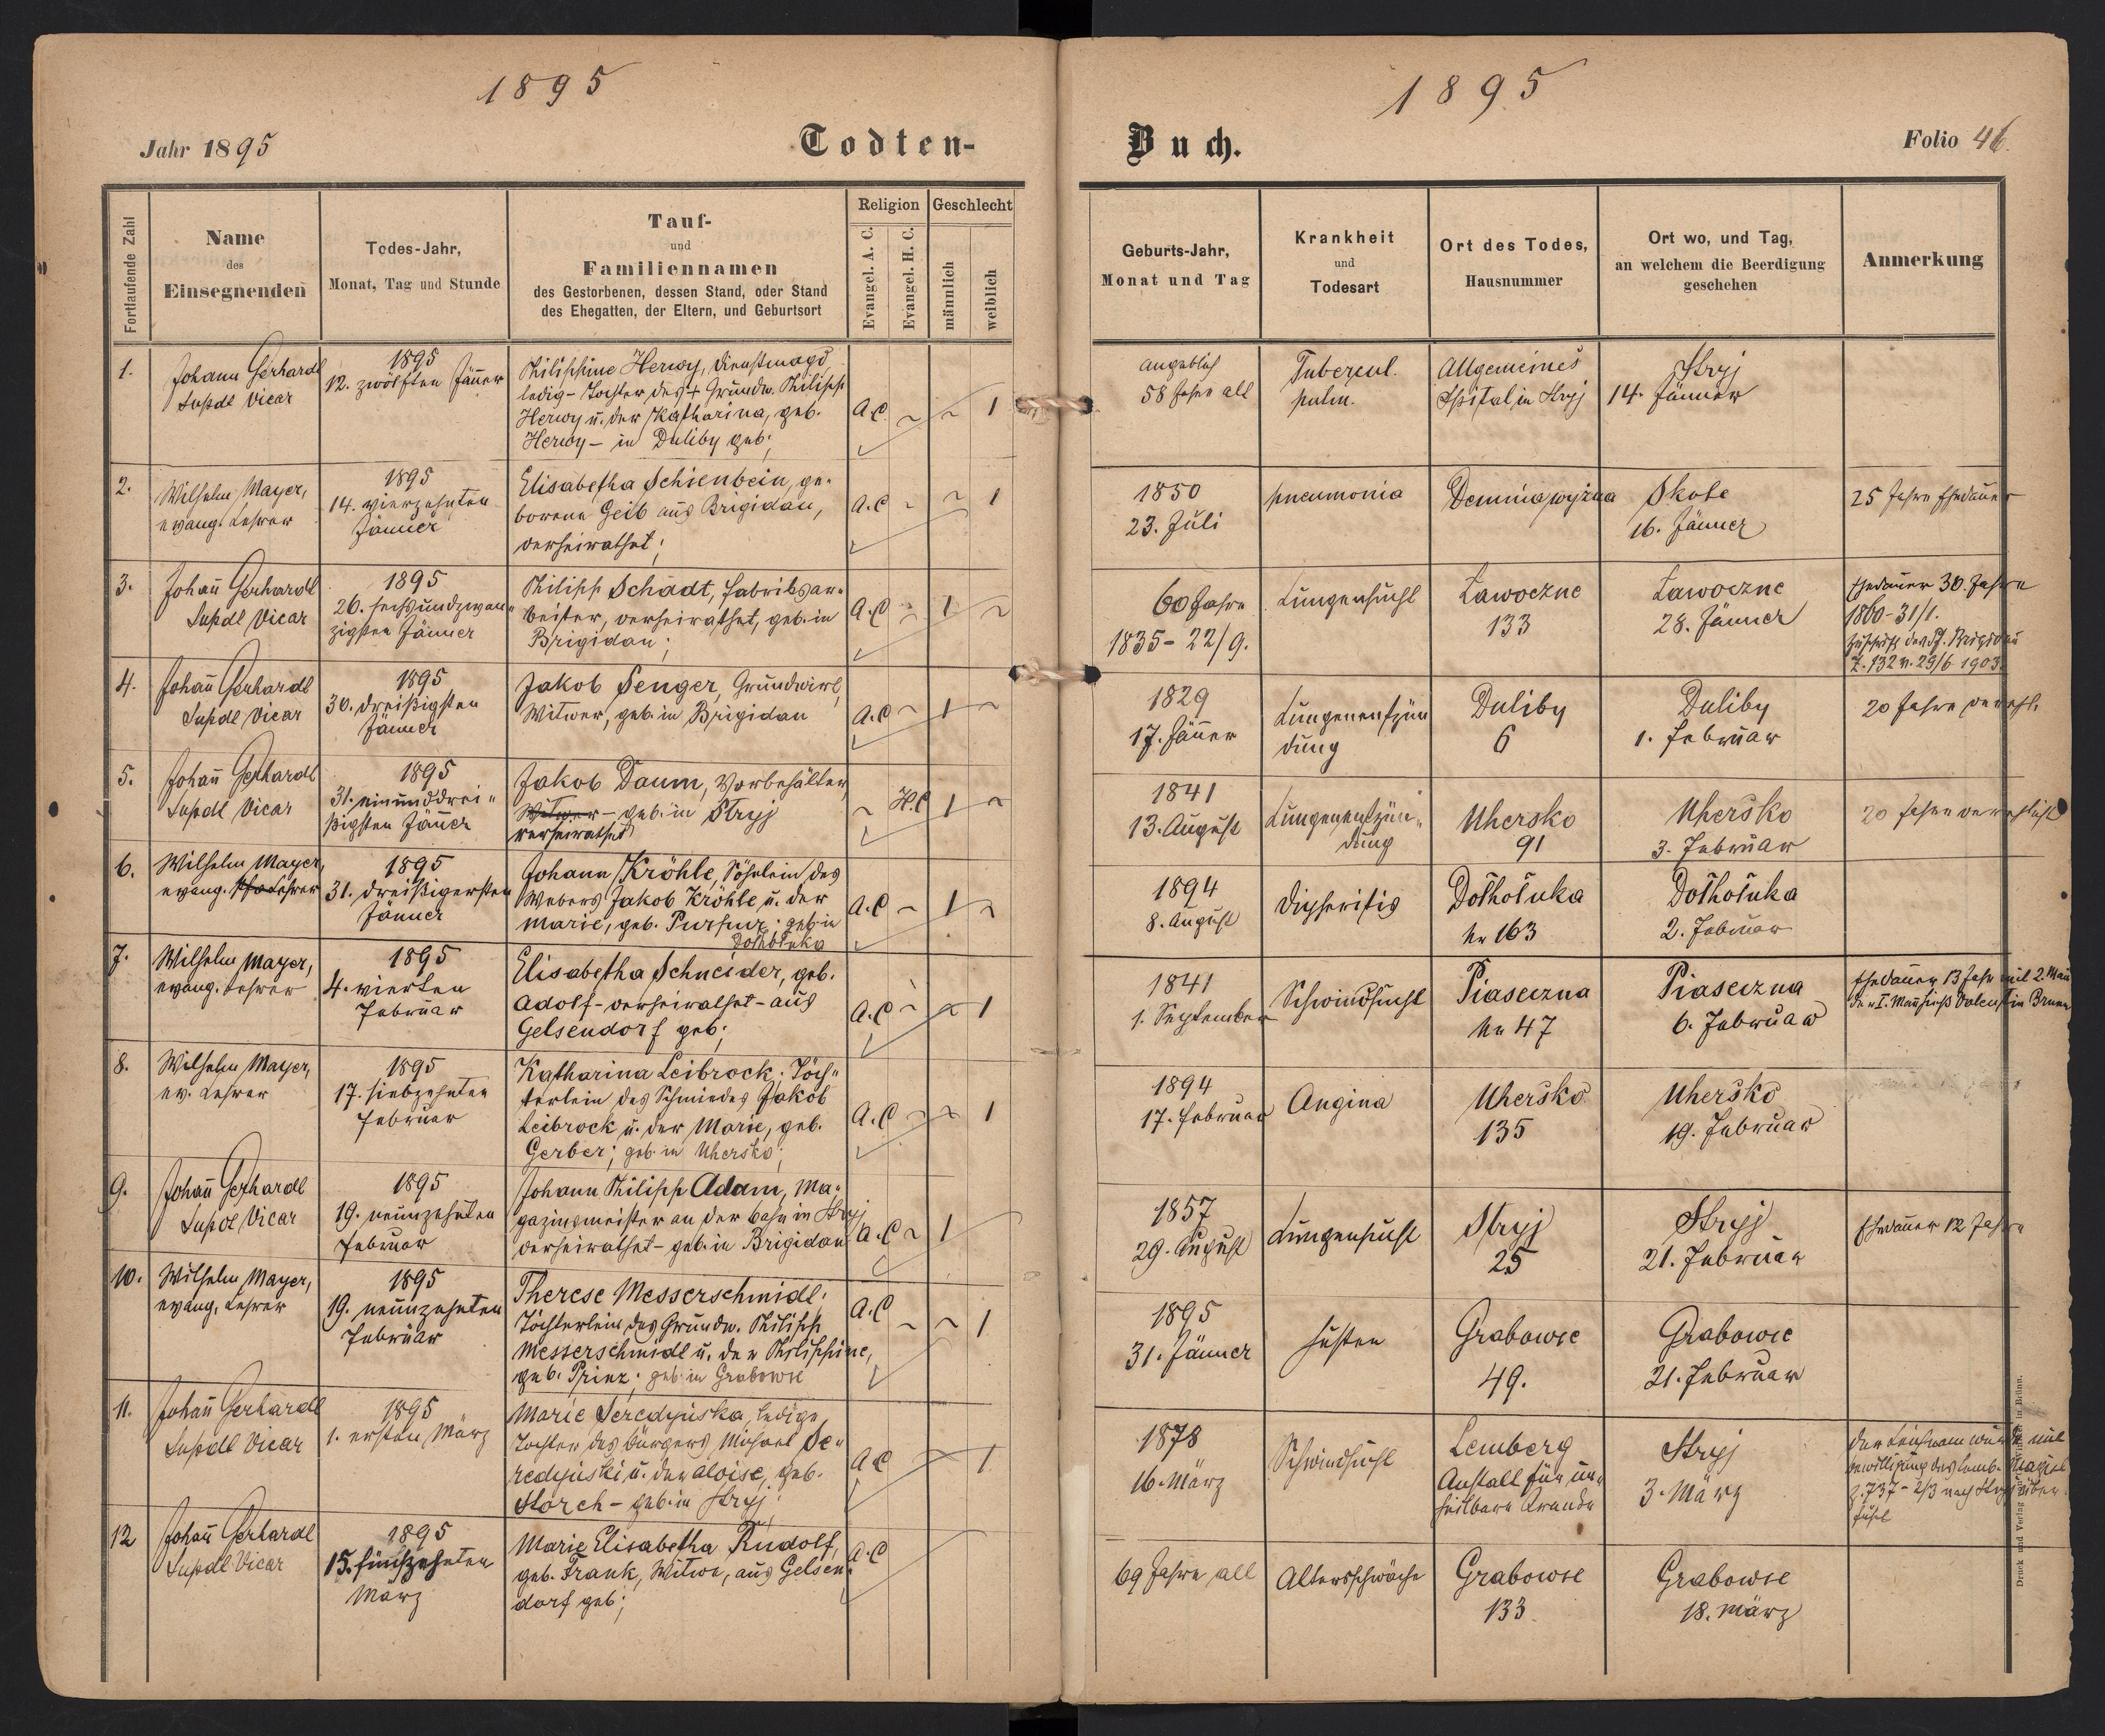 1895
1895
Jahr 1895
Todten-
Buch.
Folio 46.
Fortlaufende Zahl
Name
des
Einsegnenden
Todes-Jahr,
Monat, Tag und Stunde
Tauf-
und
Familiennamen
des Gestorbenen, dessen Stand, oder Stand
des Ehegatten, der Eltern, und Geburtsort
Religion
Evangel. A. C.
Evangel. H. C.
Geschlecht
männlich
weiblich
Geburts-Jahr,
Monat und Tag
Krankheit
und
Todesart
Ort des Todes,
Hausnummer
Ort wo, und Tag,
an welchem die Beerdigung
geschehen
Anmerkung
1.
Johann Gerhardt
Supdt Vicar
1895
12. zwölften Jänner
Philippine Herwy, Dienstmagd
ledig - Tochter des + Grundw. Philipp
Herwy u. der Katharina, geb.
Herwy - in Duliby geb.;
A.C. ~ ~ 1
angeblich
58 Jahre alt
Tubercul.
pulm.
Allgemeines
Spital in Stryj
Stryj
14. Jänner
2.
Wilhelm Mayer,
evang. Lehrer
1895
14. vierzehnten
Jänner
Elisabetha Schienbein, ge-
borene Geib aus Brigidau,
verheirathet;
A.C ~ ~ 1
1850
23. Juli
pneumonia
Demnia wyżna
Skole
16. Jänner
25 Jahre Ehedauer
3.
Johañ Gerhardt
Supdt Vicar
1895
26. sechsundzwan-
zigsten Jänner
Philipp Schadt, Fabriksar-
beiter, verheirathet, geb. in
Brigidau;
A.C ~ 1 ~
60 Jahre
1835 - 22/9.
Lungensucht
Ławoczne
133
Ławoczne
28. Jänner
Ehedauer 30. Jahre
1860 - 31/1.
Z. 132 v. 23/6 1903.
4.
Johañ Gerhardt
Supdt Vicar
1895
30. dreißigsten
Jänner
Jakob Senger, Grundwirt,
Witwer, geb. in Brigidau
A.C ~ 1 ~
1829
17. Jäñer
Lungenentzün
dung
Duliby
6
Duliby
1. Februar
20 Jahre verehl.
5.
Johañ Gerhardt
Supdt Vicar
1895
31. einunddrei-
ßigsten Jäñer
Jakob Daum, Vorbehälter,
Witwer - geb. in Stryj
verheirathet
~ H.C 1 ~
1841
13. August
Lungenentzün-
dung
Uhersko
91
Uhersko
3. Februar
20 Jahre verehlicht
6.
Wilhelm Mayer,
evang. Lehrer
1895
31. dreißigersten
Jänner
Johann Kröhle, Söhnlein des
Webers Jakob Kröhle u. der
Marie, geb. Purpur; geb. in
Dołhołuka
A.C ~ 1 ~
1894
8. August
Dipheritis
Dołhołuka
Nr 163
Dołhołuka
2. Februar
7.
Wilhelm Mayer,
evang. Lehrer
1895
4. vierten
Februar
Elisabetha Schneider, geb.
Adolf - verheirathet - aus
Gelsendorf geb;
A.C ~ ~ 1
1841
1. September
Schwindsucht
Piaseczna
Nr 47
Piaseczna
6. Februar
Ehedauer 13 Jahr mit 2. Mañ
der I. Mañ hieß Valentin Brunn
8.
Wilhelm Mayer,
ev. Lehrer
1895
17. siebzehnten
Februar
Katharina Leibrock; Töch-
terlein des Schmiedes Jakob
Leibrock u. der Marie, geb.
Gerber; geb. in Uhersko;
A.C ~ ~ 1
1894
17. Februar
Angina
Uhersko
135
Uhersko
19. Februar
9.
Johañ Gerhardt
Supdt Vicar
1895
19. neunzehnten
Februar
Johann Philipp Adam, Ma-
gazinsmeister an der Bahn in Stryj
verheirathet - geb. in Brigidau
A.C ~ 1
1857
29. August
Lungensucht
Stryj
25
Stryj
21. Februar
Ehedauer 12 Jahre
10.
Wilhelm Mayer,
evang. Lehrer
1895
19. neunzehnten
Februar
Therese Messerschmidt;
Töchterlein des Grundw. Philipp
Messerschmidt u. der Philippine,
geb. Prinz; geb. in Grabowce
A.C ~ ~ 1
1895
31. Jänner
Husten
Grabowce
49.
Grabowce
21. Februar
11.
Johañ Gerhardt
Supdt Vicar
1895
1. ersten März
Marie Seredyńska, ledige
Tochter des Bürgers Michael Se-
redyński u. der Aloise, geb.
Storch - geb. in Stryj;
A.C 1
1878
16. März
Schwindsucht
Lemberg
Anstalt für un-
heilbare Kranke
Stryj
3. März
Der Leichnam wurde mit
Bewilligung des Lemb. Magist
Z. 737 - 2/3 nach Stryj über
führt
12
Johañ Gerhardt
Supdt Vicar
1895
15. fünfzehnten
März
Marie Elisabetha Rudolf,
geb. Frank, Witwe, aus Gelsen-
dorf geb;
A.C
69 Jahre alt
Altersschwäche
Grabowce
133
Grabowce
18. März
Druck und Verlag in Brünn.